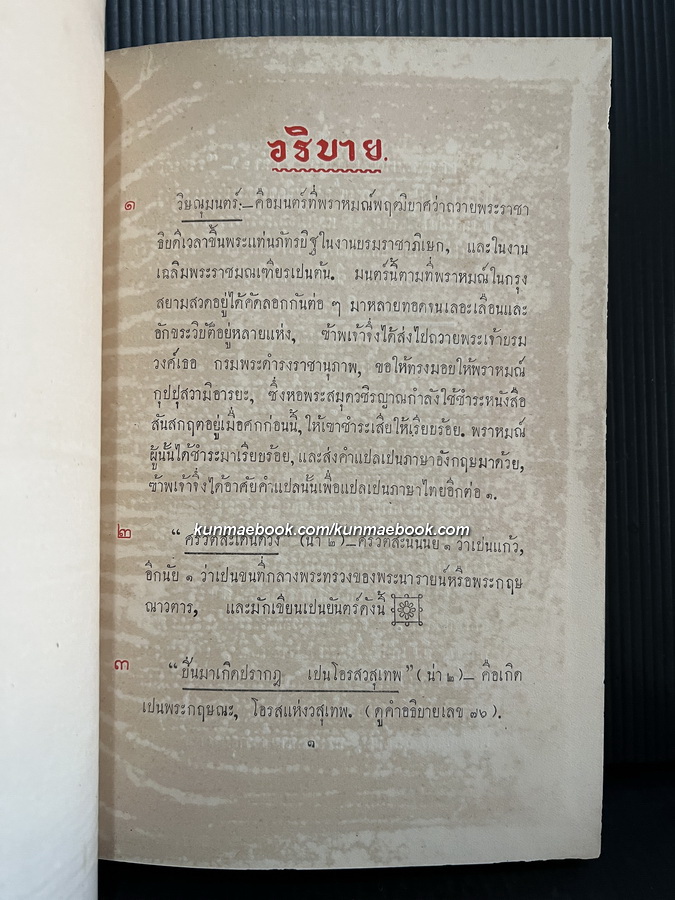 อธิบาย.
๑ วิษณุมนตร์:–คือมนตร์ที่พราหมณ์พฤฒิบาศว่าถวายพระราชา
ธิบดีเวลาขึ้นพระแท่นภัทรบิฐในงานบรมราชาภิเษก, และในงาน
เฉลิมพระราชมณเฑียรเปนต้น. มนตร์นี้ตามที่พราหมณ์ในกรุง
สยามสวดอยู่ได้คัดลอกกันต่อ ๆ มาหลายทอดจนเลอะเลือนและ
อักขระวิบัติอยู่หลายแห่ง, ข้าพเจ้าจึ่งได้ส่งไปถวายพระเจ้าบรม
วงศ์เธอ กรมพระดำรงราชานุภาพ, ขอให้ทรงมอบให้พราหมณ์
กุปปุสวามิอารยะ, ซึ่งหอพระสมุดวชิรญาณกำลังใช้ชำระหนังสือ
สันสกฤตอยู่เมื่อศกก่อนนี้, ให้เขาชำระเสียให้เรียบร้อย. พราหมณ์
ผู้นั้นได้ชำระมาเรียบร้อย, และส่งคำแปลเปนภาษาอังกฤษมาด้วย,
ข้าพเจ้าจึ่งได้อาศัยคำแปลนั้นเพื่อแปลเปนภาษาไทยอีกต่อ ๑.
kunmaebook.com/kunmaebook.com
๒ “ (น่า ๒)– ๑ ว่าเปนแก้ว,
อีกนัย ๑ ว่าเปนขนที่กลางพระทรวงของพระนารายน์หรือพระกฤษ
ณาวตาร, และมักเขียนเปนยันตร์ดังนี้
๓ “ขึ้นมาเกิดปรากฎ เปนโอรสวสุเทพ” (น่า ๒)– คือเกิด
เปนพระกฤษณะ, โอรสแห่งวสุเทพ. (ดูคำอธิบายเลข ๓๖).
๑